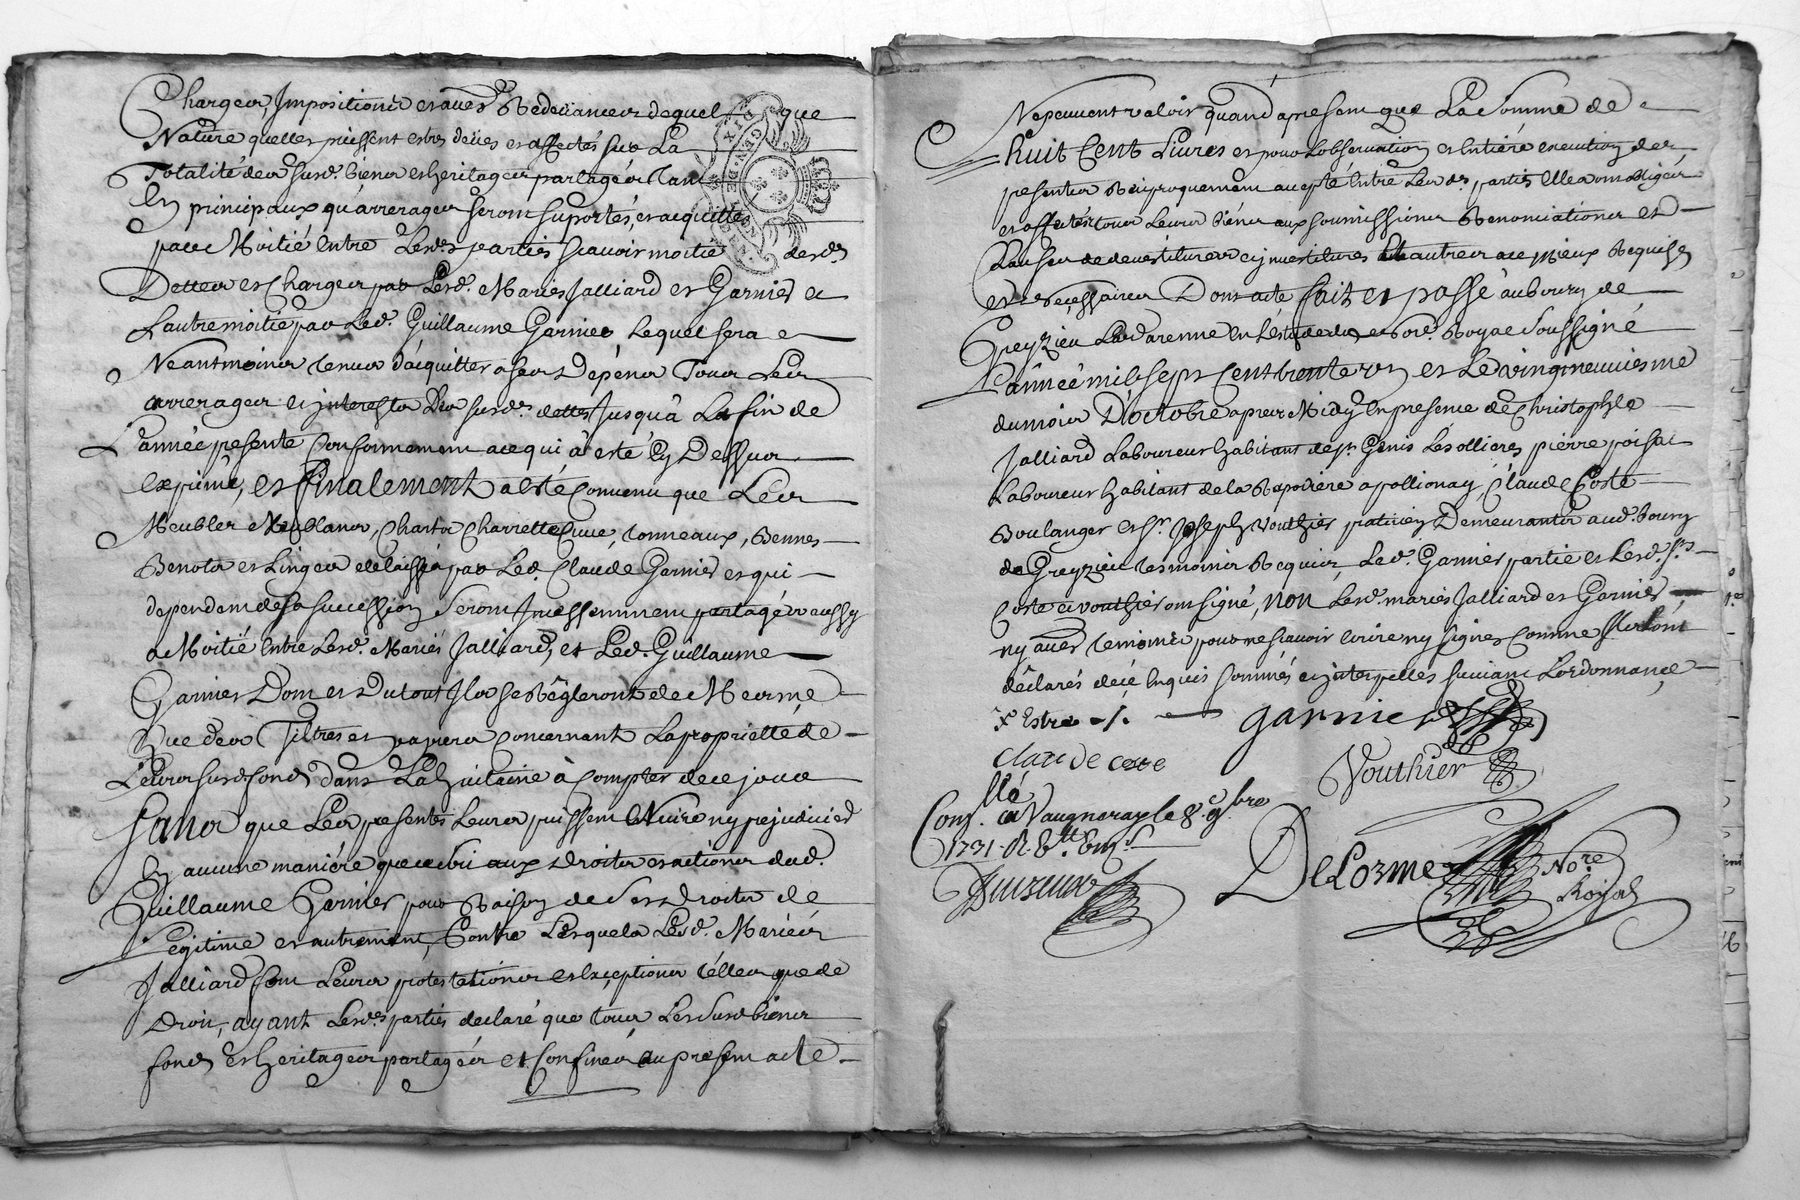 Charges, Impositions et autres Redevances de quelque
Nature quelles puissent estre deües et affectés sur La
Totalité des susd. biens et heritages partagés tant
En principaux qu'arrerages seront suportés, et acquittés
par Moitié Entre Lesd. parties scavoir moitié desd.
Dettes et Charges par Lesd. Mariés Jalliard et Garnier et
L'autre moitié par Led. Guillaume Garnier, Lequel sera
Neantmoins tenus d'acquitter a ses Dépens Tous Les
arrerages et interests Des susd. dettes Jusqu'à La fin de
L'année presente Conformement a ce qui à esté Cy Dessus
exprimé, et finalement a esté Convenu que Les
Meubles Meublans, Chars Charrette Cuve, tonneaux, Bennes
Benots et Linges delaissés par Led. Claude Garnier et qui
dependent de sa succession seront Incessamment partagés aussy
a Moitié Entre Lesd. Mariés Jalliard, et Led. Guillaume
Garnier Dont et Du tout Ils se Régleront de Mesme
Que des Tiltres et papiers Concernant La proprietté de
Leurs susd. fonds dans La huitaine à Compter de ce jour
sans que Les presentes Leurs puissent Nuire ny prejudicier
En aucune maniére que ce soit aux Droits et actions dud.
Guillaume Garnier pour Raison de ses Droits de
Legitime et autrement, Contre Lesquels Lesd. Mariés
Jalliard font Leurs protestations et Exceptions télles que de
Droit, ayant Lesd. parties declaré que tous Les susd. biens
fonds et heritages partagés et Confinés au present acte
Ne peuvent valoir quand a present que La somme de
huit Cent Livres et pour L'observation et Entiére execution des
presentes Réciproquement accepté Entre Lesd. parties Elles ont obligées
et affectés tous Leurs biens aux soumissions Renonciations et
Clauses de devestitures et investitures et autres au Mieux Requises
et nécessaires Dont acte fait et passé au bourg de
Greyzieu La Varenne En L'estude du Nore. Royal soussigné
L'année mil sept Cent trente un et Le vingt neuvieme
du mois D'octobre apres Midy En presence de Christophle
Jalliard Laboureur habitant de St. Genis Lésollieres pierre poisat
Laboureur habitant de la Rapoiere a pollionay, Claude Coste
Boulanger et Sr. Joseph Vouthier paticien Demeurants aud. bourg
de Greyzieu tesmoins Requis, Led. Garnier partie et Lesd. Srs
Coste et Vouthier ont signé, non Lesd. mariés Jalliard et Garnier
ny autres temoins pour ne scavoir Ecrire ny signer Comme Ils Lont
déclarés de ce Enquis sommés et interpellés suivant L'ordonnance
garnier
claude coste
Vouthier
Cont. a Vaugneray le 8e. 9bre
1731
DeLorme Nore
Royal